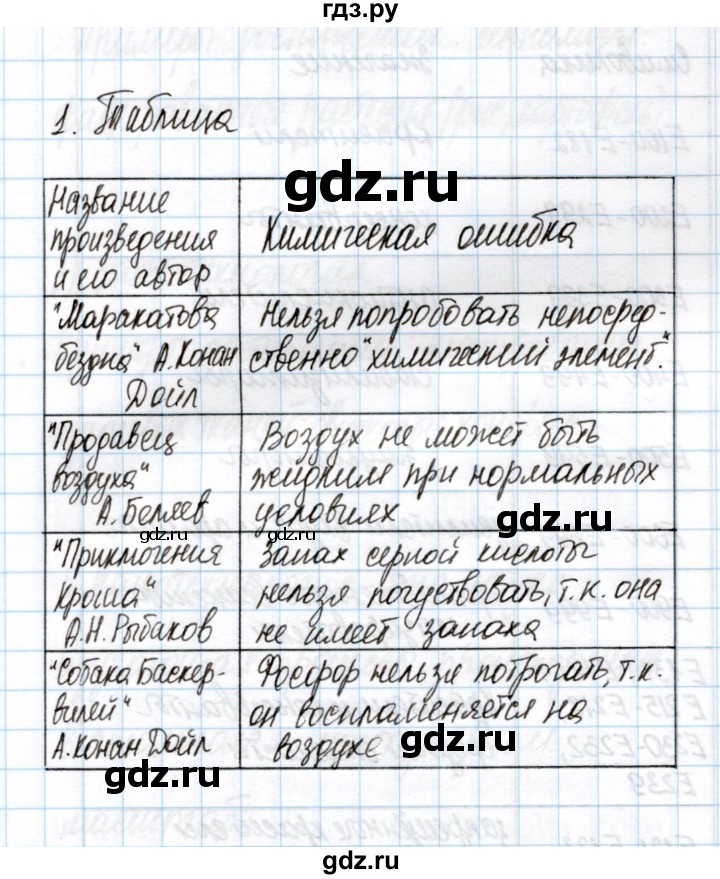 гдз.ру
1. Таблица
gdz.ru
Название
произведения
и его автор
Химическая ошибка
"Маракатова
бездна" А.Конан
Дойл
Нельзя попробовать непосред-
ственно "химический элемент".
"Продавец
воздуха"
А.Беляев
Воздух не может быть
жидким при нормальных
условиях
gdz.ru
gdz.ru
gdz.ru
gdz.ru
"Приключения
Кроша"
А.Н.Рыбаков
Запах серной кислоты
нельзя почувствовать, т.к. она
не имеет запаха
"Собака Баскер-
вилей"
А.Конан Дойл
Фосфор нельзя потрогать, т.к.
он воспламеняется на
воздухе
gdz.ru
gdz.ru
gdz.ru